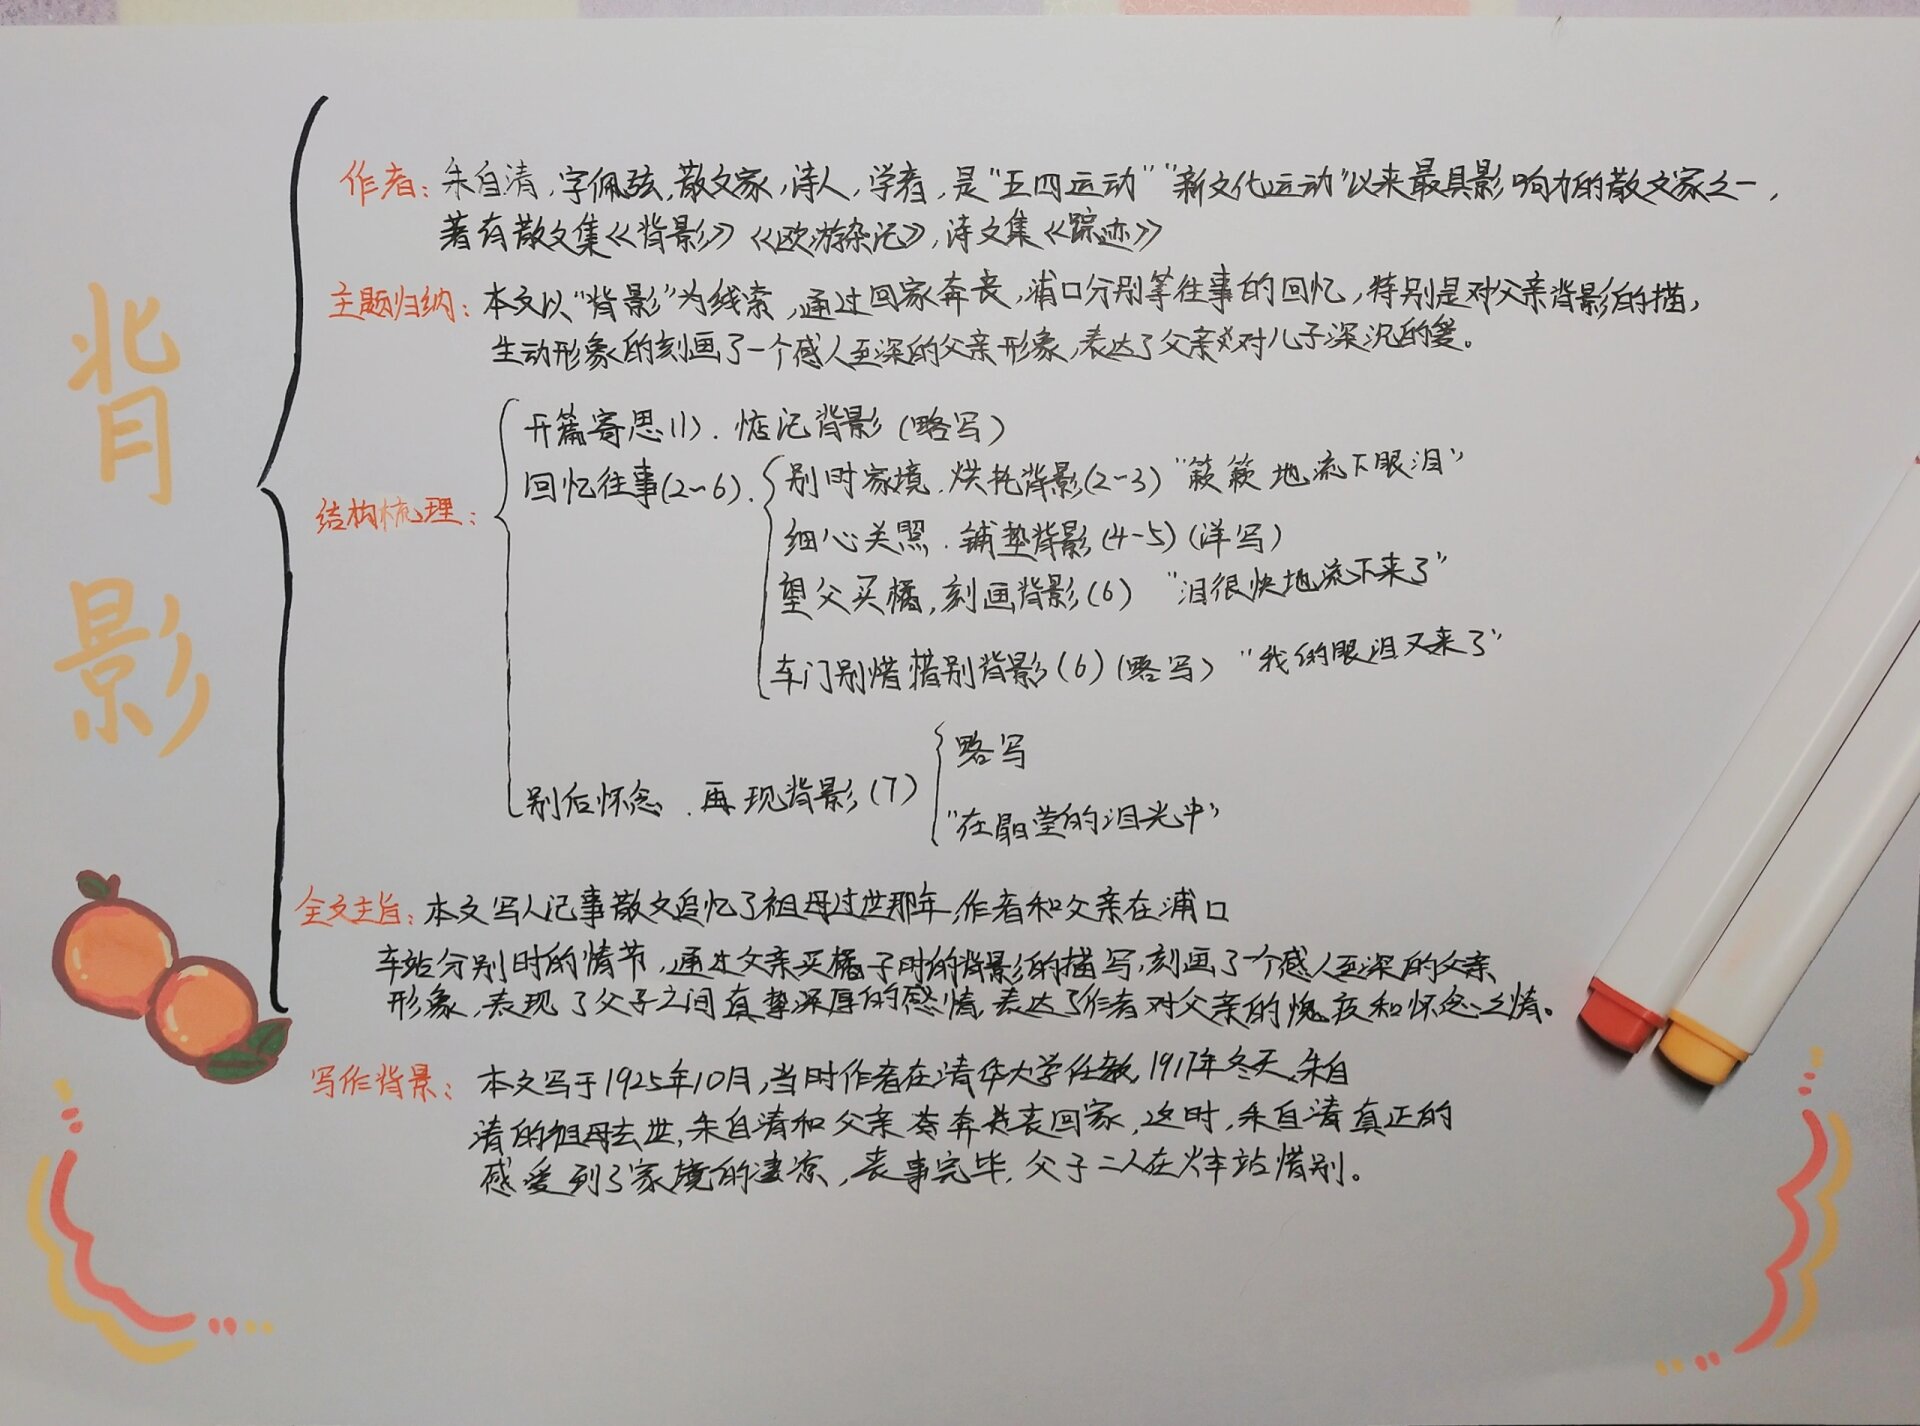 背影
作者：朱自清，字佩弦，散文家，诗人，学者，是"五四运动""新文化运动"以来最具影响力的散文家之一，
著有散文集《背影》《欧游杂记》，诗文集《踪迹》
主题归纳：本文以"背影"为线索，通过回家奔丧，浦口分别等往事的回忆，特别是对父亲背影的描，
生动形象的刻画了一个感人至深的父亲形象，表达了父亲对儿子深沉的爱。
结构梳理：
开篇寄思(1)．惦记背影（略写）
回忆往事(2~6)．
别时家境．烘托背影(2-3)"簌簌地流下眼泪"
细心关照．铺垫背影(4-5)(洋写)
望父买橘，刻画背影(6) "泪很快地流下来了"
车门别惜惜别背影(6)(略写) "我的眼泪又来了"
别后怀念．再现背影(7)
略写
"在晶莹的泪光中"
全文主旨：本文写人记事散文追忆了祖母过世那年，作者和父亲在浦口
车站分别时的情节，通过父亲买橘子时的背影的描写，刻画了一个感人至深的父亲
形象，表现了父子之间真挚深厚的感情，表达了作者对父亲的愧疚和怀念之情。
写作背景：本文写于1925年10月，当时作者在清华大学任教，1917年冬天，朱自
清的祖母去世，朱自清和父亲奔丧回家，这时，朱自清真正的
感受到了家境的凄凉，丧事完毕，父子二人在火车站惜别。